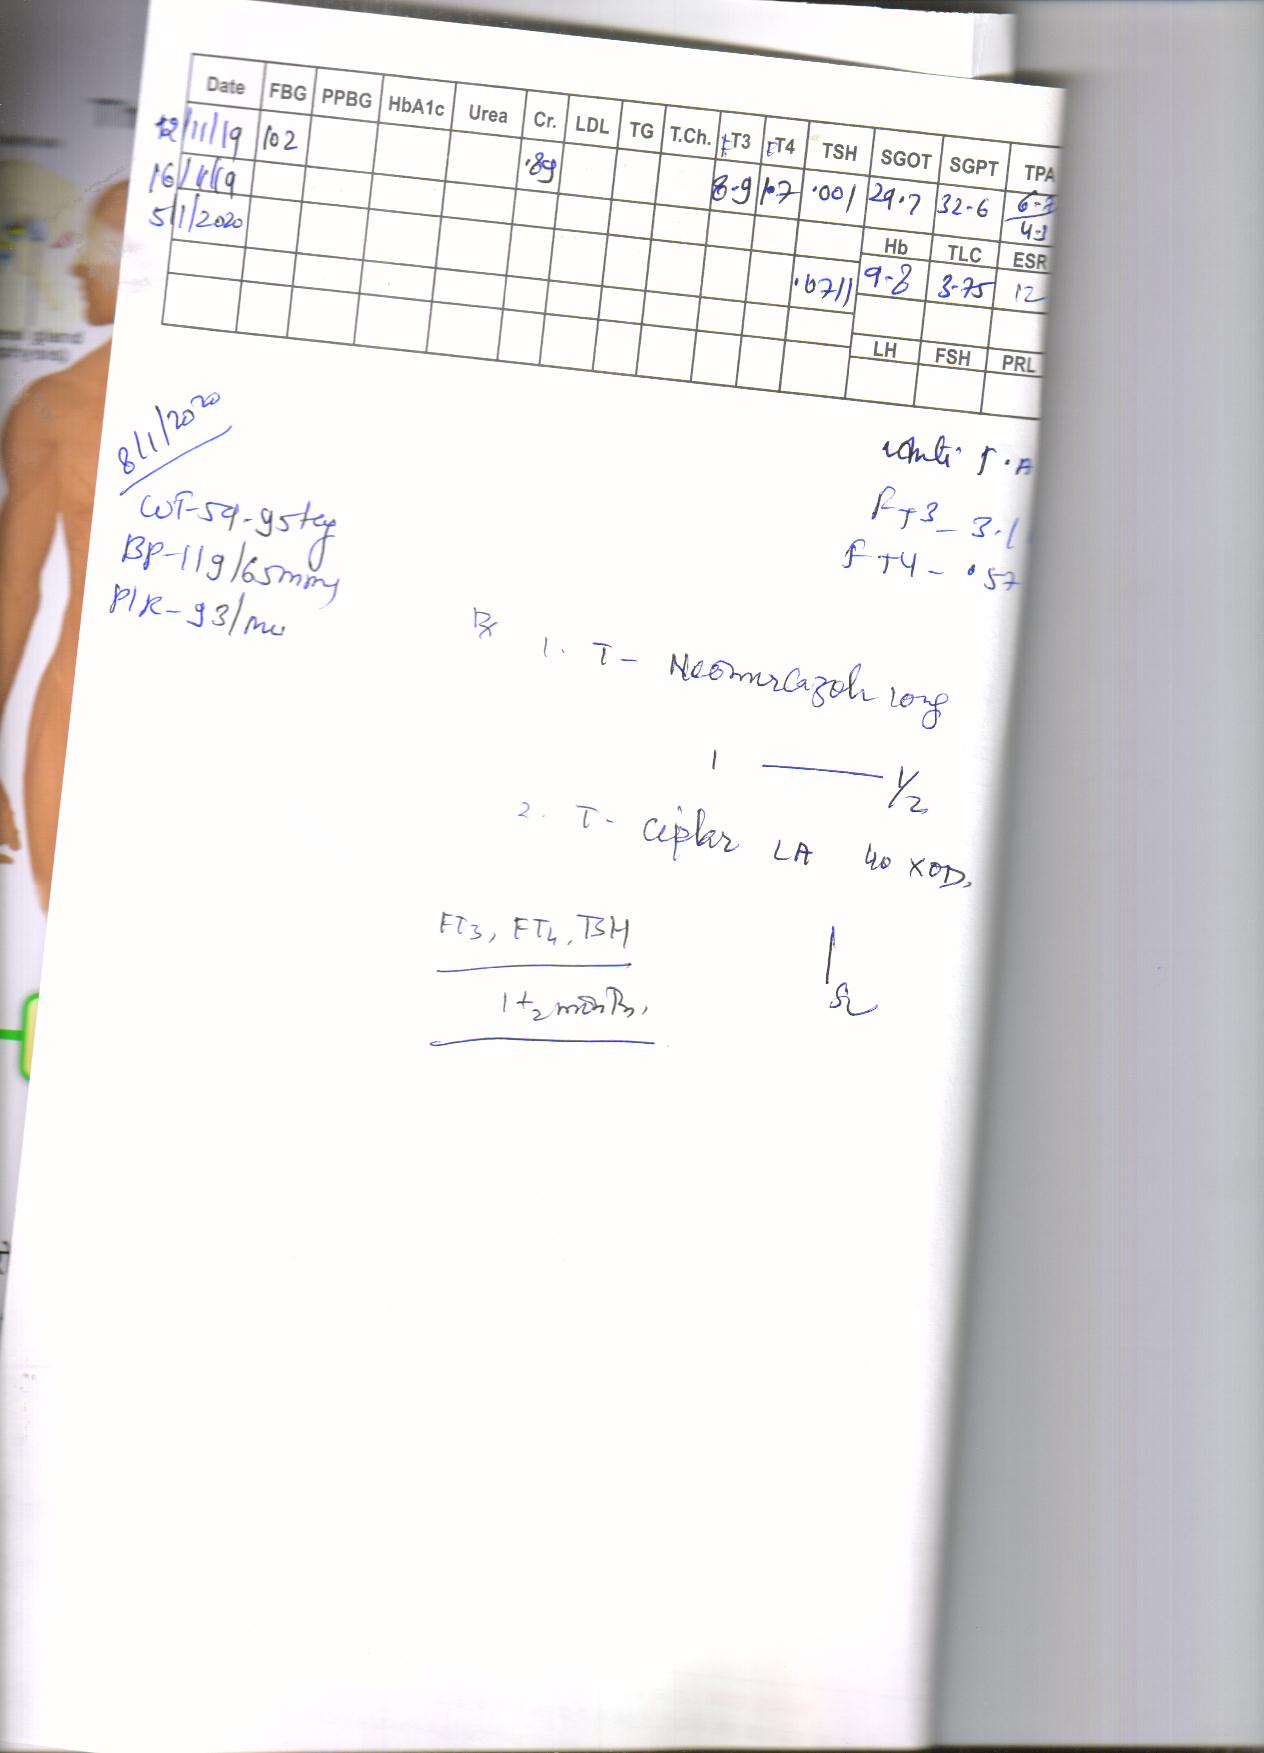 Date FBG PPBG HbA1c Urea Cr. LDL TG T.Ch. FT3 FT4 TSH SGOT SGPT TPA
12/11/19 102
16/11/19 .89 8.9 1.7 .001 29.7 32.6
5/1/2020
Hb TLC ESR
9.8 3.75 12
LH FSH PRL
8/1/2020
Anti T.A
WT-59.95kg
FT3 - 3.1
BP-119/65mm
FT4 - .57
P/R-93/mi
Rx
1. T- Neomercazole 10mg
1 — 1/2
2. T- Ciplar LA 40 XOD,
FT3, FT4, TSH